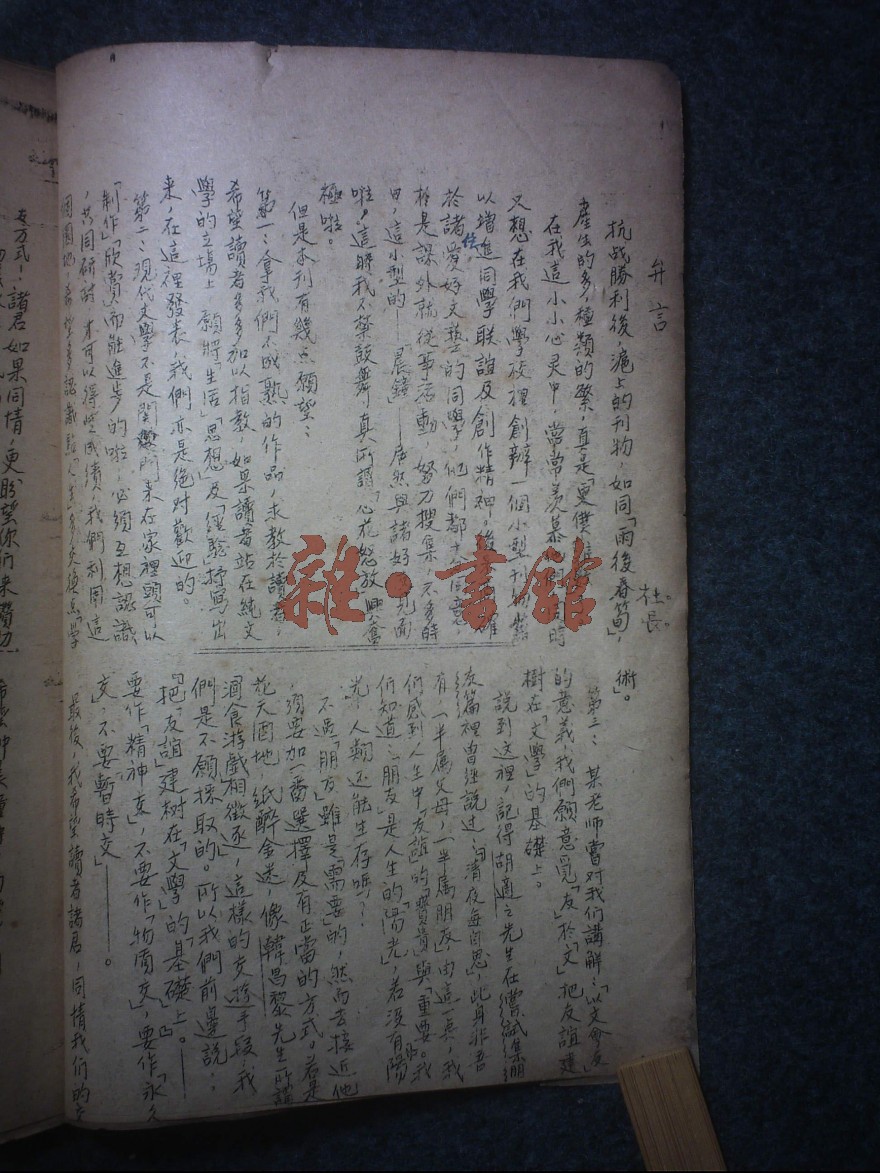 弁言
社長
抗战勝利後，滬上的刊物，如同「雨後春筍」，
產生的多，種類的繁，真是「更僕
在我這小小心灵中，常常羡慕
又想在我們學校裡創辦一個小型刊物
以增進同學联誼及創作精神。
於諸愛好文藝的同學，他們都
於是課外就從事活動，努力搜集，不多時
由，這小型的——「晨鐘」——居然與諸好
啦，這時我不禁鼓舞真所謂「心花怒放」興奮
極啦。
但是本刊有幾点願望：
第一：拿我們不成熟的作品，求教於讀者，
希望讀者多多加以指教，如果讀者站在純文
學的立場上，願將「生活」「思想」及「經驗」抒寫出
来，在這裡發表，我們亦是絕対歡迎的。
第二：現代文學不是関門来在家裡頭可以
「制作」「欣賞」而能進步的啦，必須互想認識
，共同研討，才可以得些成績，我們利用這
園地，希望多認識
術」。
第三：某老师嘗对我们講解：「以文會友」
的意義，我們願意覓「友」於「文」把友誼建
樹在「文學」的基礎上。
說到这裡，記得胡適之先生在嘗試集朋
友篇裡曾經說过：「清夜每自思，此身非吾
有，一半屬父母，一半屬朋友」由這一点，我
们感到人生中「友誼」的「寶貴」與「重要」。我
们知道：「朋友」是人生的「陽光」，若没有陽
光，人類还能生存嗎？
不过「朋友」雖是「需要」的，然而去接近他
須要加一番選擇及有正當的方式。若是
花天酒地，紙醉金迷，像韓昌黎先生所謂
「酒食游戲相徵逐」，這樣的交接手段，我
們是不願採取的。所以我們前邊說：
「把友誼」建树在「文學」的「基礎」上。——
要作「精神友」，不要作「物質友」，要作「永久
交」，不要「暫時交」——。
最後，我希望讀者諸君，同情我们的
友方式！諸君如果同情，更盼望你们来